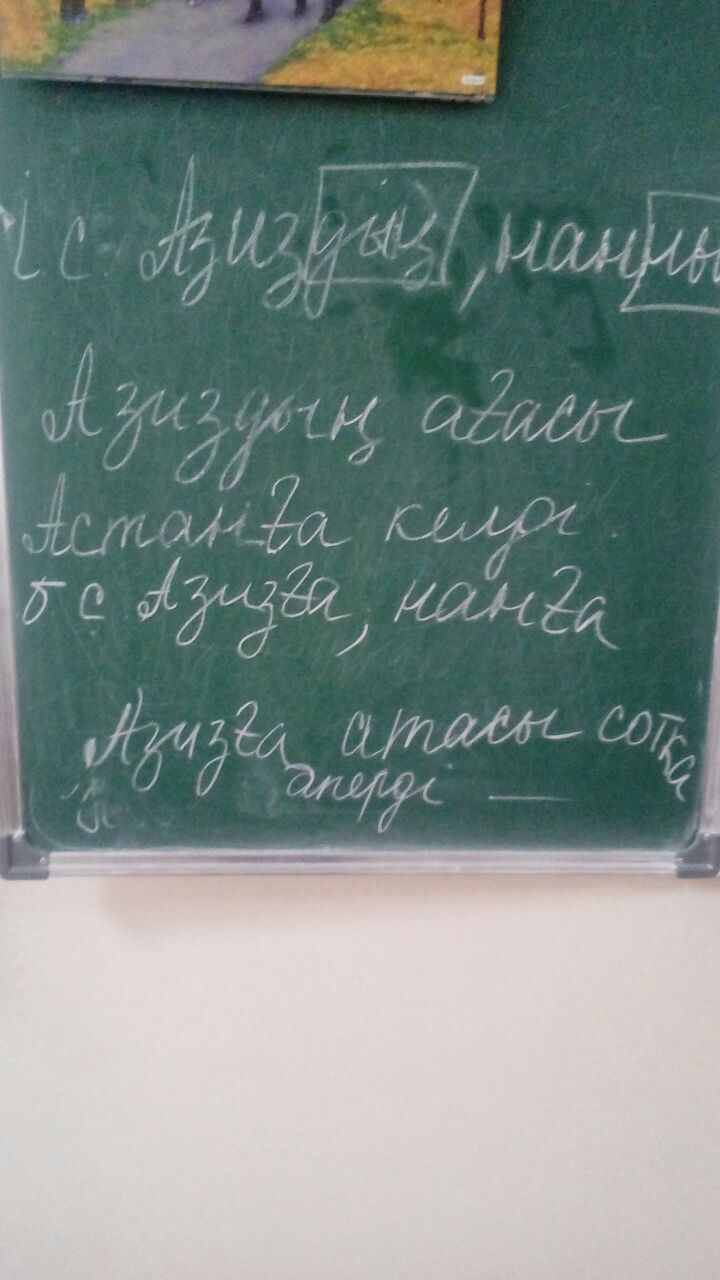 і с. Азиздың, нанны
Азиздың ағасы
Астанға келді.
б с Азизға, нанға
Азизға атасы сотқа
әперді —